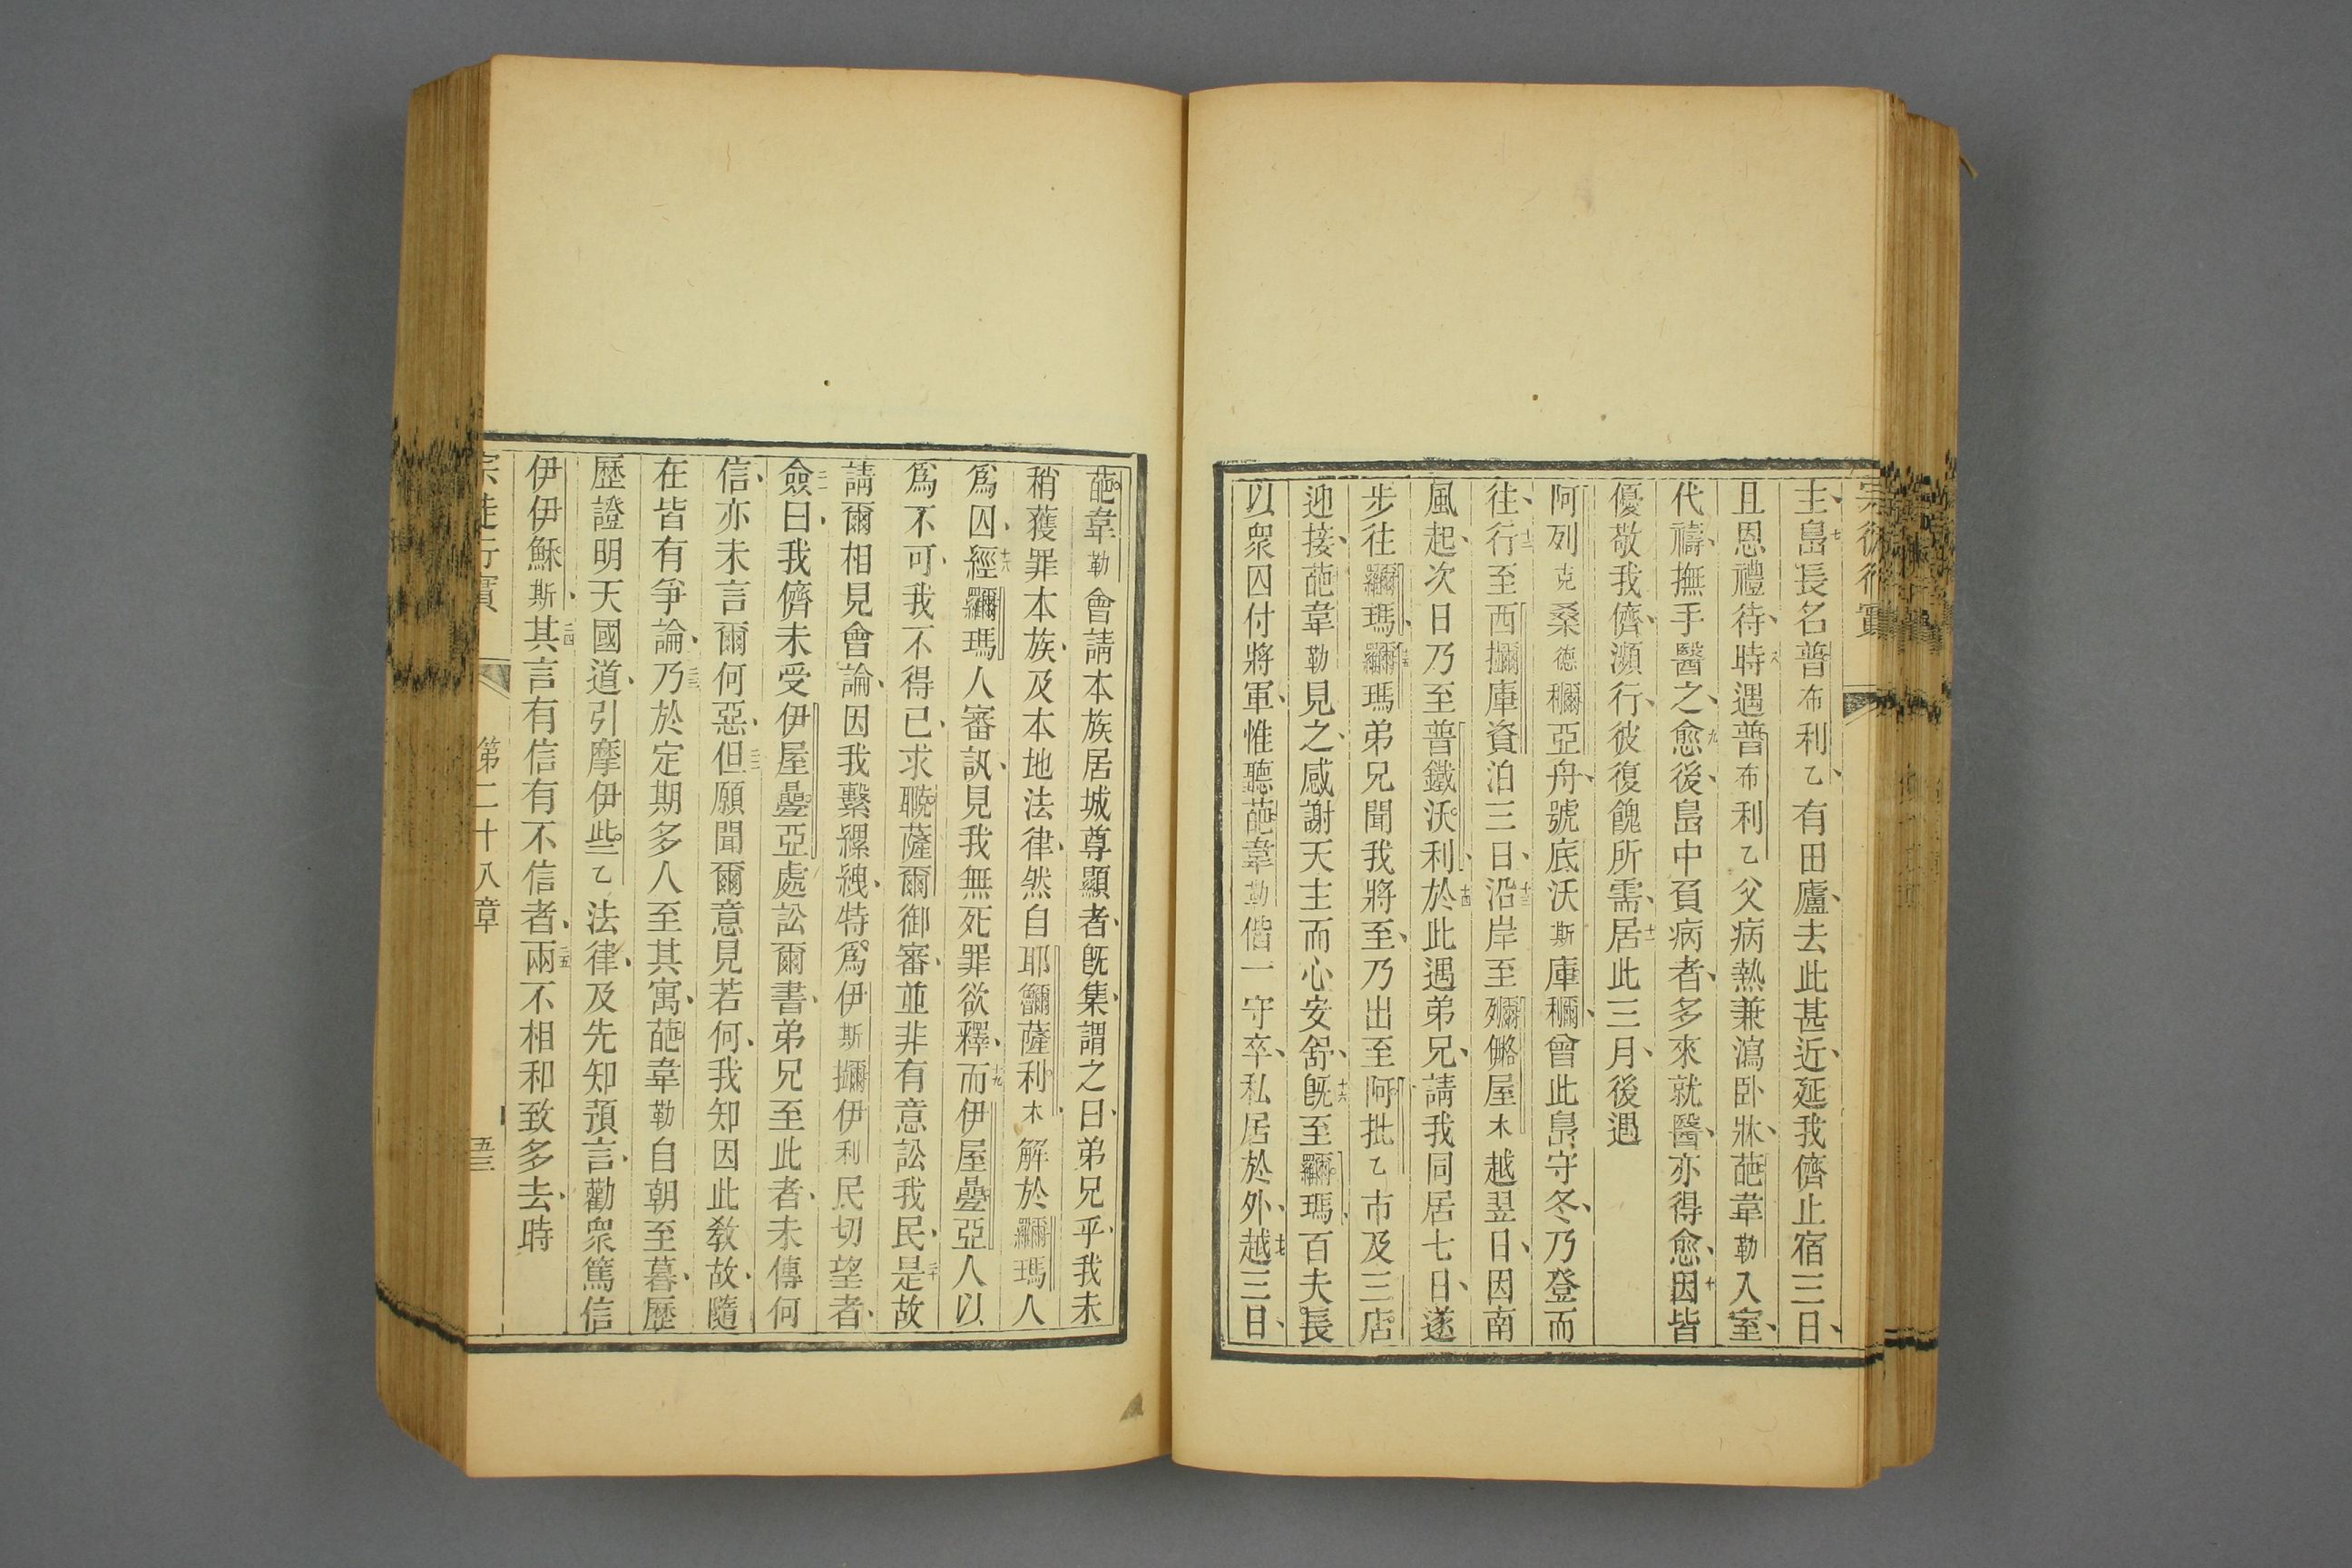 宗徒行實
主、七島長名普布利乙、有田廬、去此甚近、延我儕止宿三日、
且恩禮待、八時遇普布利乙父病熱兼瀉卧牀、葩韋勒入室、
代禱、撫手醫之、愈九後、島中負病者、多來就醫、亦得愈、十因皆
優敬我儕、瀕行、彼復餽所需、十一居此三月、後遇
阿列克桑德穪亞舟、號底沃斯庫穪、曾此島守冬、乃登而
往、十二行至西擟庫資泊三日、十三沿岸至㺍㒇屋木越翌日、因南
風起、次日乃至普鐵沃利、十四於此遇弟兄、請我同居七日、遂
步往𱺒瑪、十五𱺒瑪弟兄聞我將至、乃出至阿批乙市及三店
迎接、葩韋勒見之、感謝天主而心安舒、十六旣至𱺒瑪、百夫長
以眾囚付將軍、惟聽葩韋勒偕一守卒、私居於外、十七越三日、
葩韋勒會請本族居城尊顯者、旣集、謂之曰、弟兄乎、我未
稍獲罪本族、及本地法律、然自耶𪓐薩利木、解於𱺒瑪人
爲囚、十八經𱺒瑪人審訊、見我無死罪欲釋、十九而伊屋疊亞人以
爲不可、我不得已、求𦗟薩爾御審、並非有意訟我民、二十是故
請爾相見會論、因我繫縲絏、特爲伊斯擟伊利民切望者、
二一僉曰、我儕未受伊屋疊亞處訟爾書、弟兄至此者、未傳何
信、亦未言爾何惡、二二但願聞爾意見若何、我知因此敎故、隨
在皆有爭論、二三乃於定期多人至其寓、葩韋勒自朝至暮、歷
歷證明天國道、引摩伊些乙法律、及先知預言、勸眾篤信
伊伊穌斯、二四其言有信有不信者、二五兩不相和致多去、時
宗徒行實 第二十八章 五三